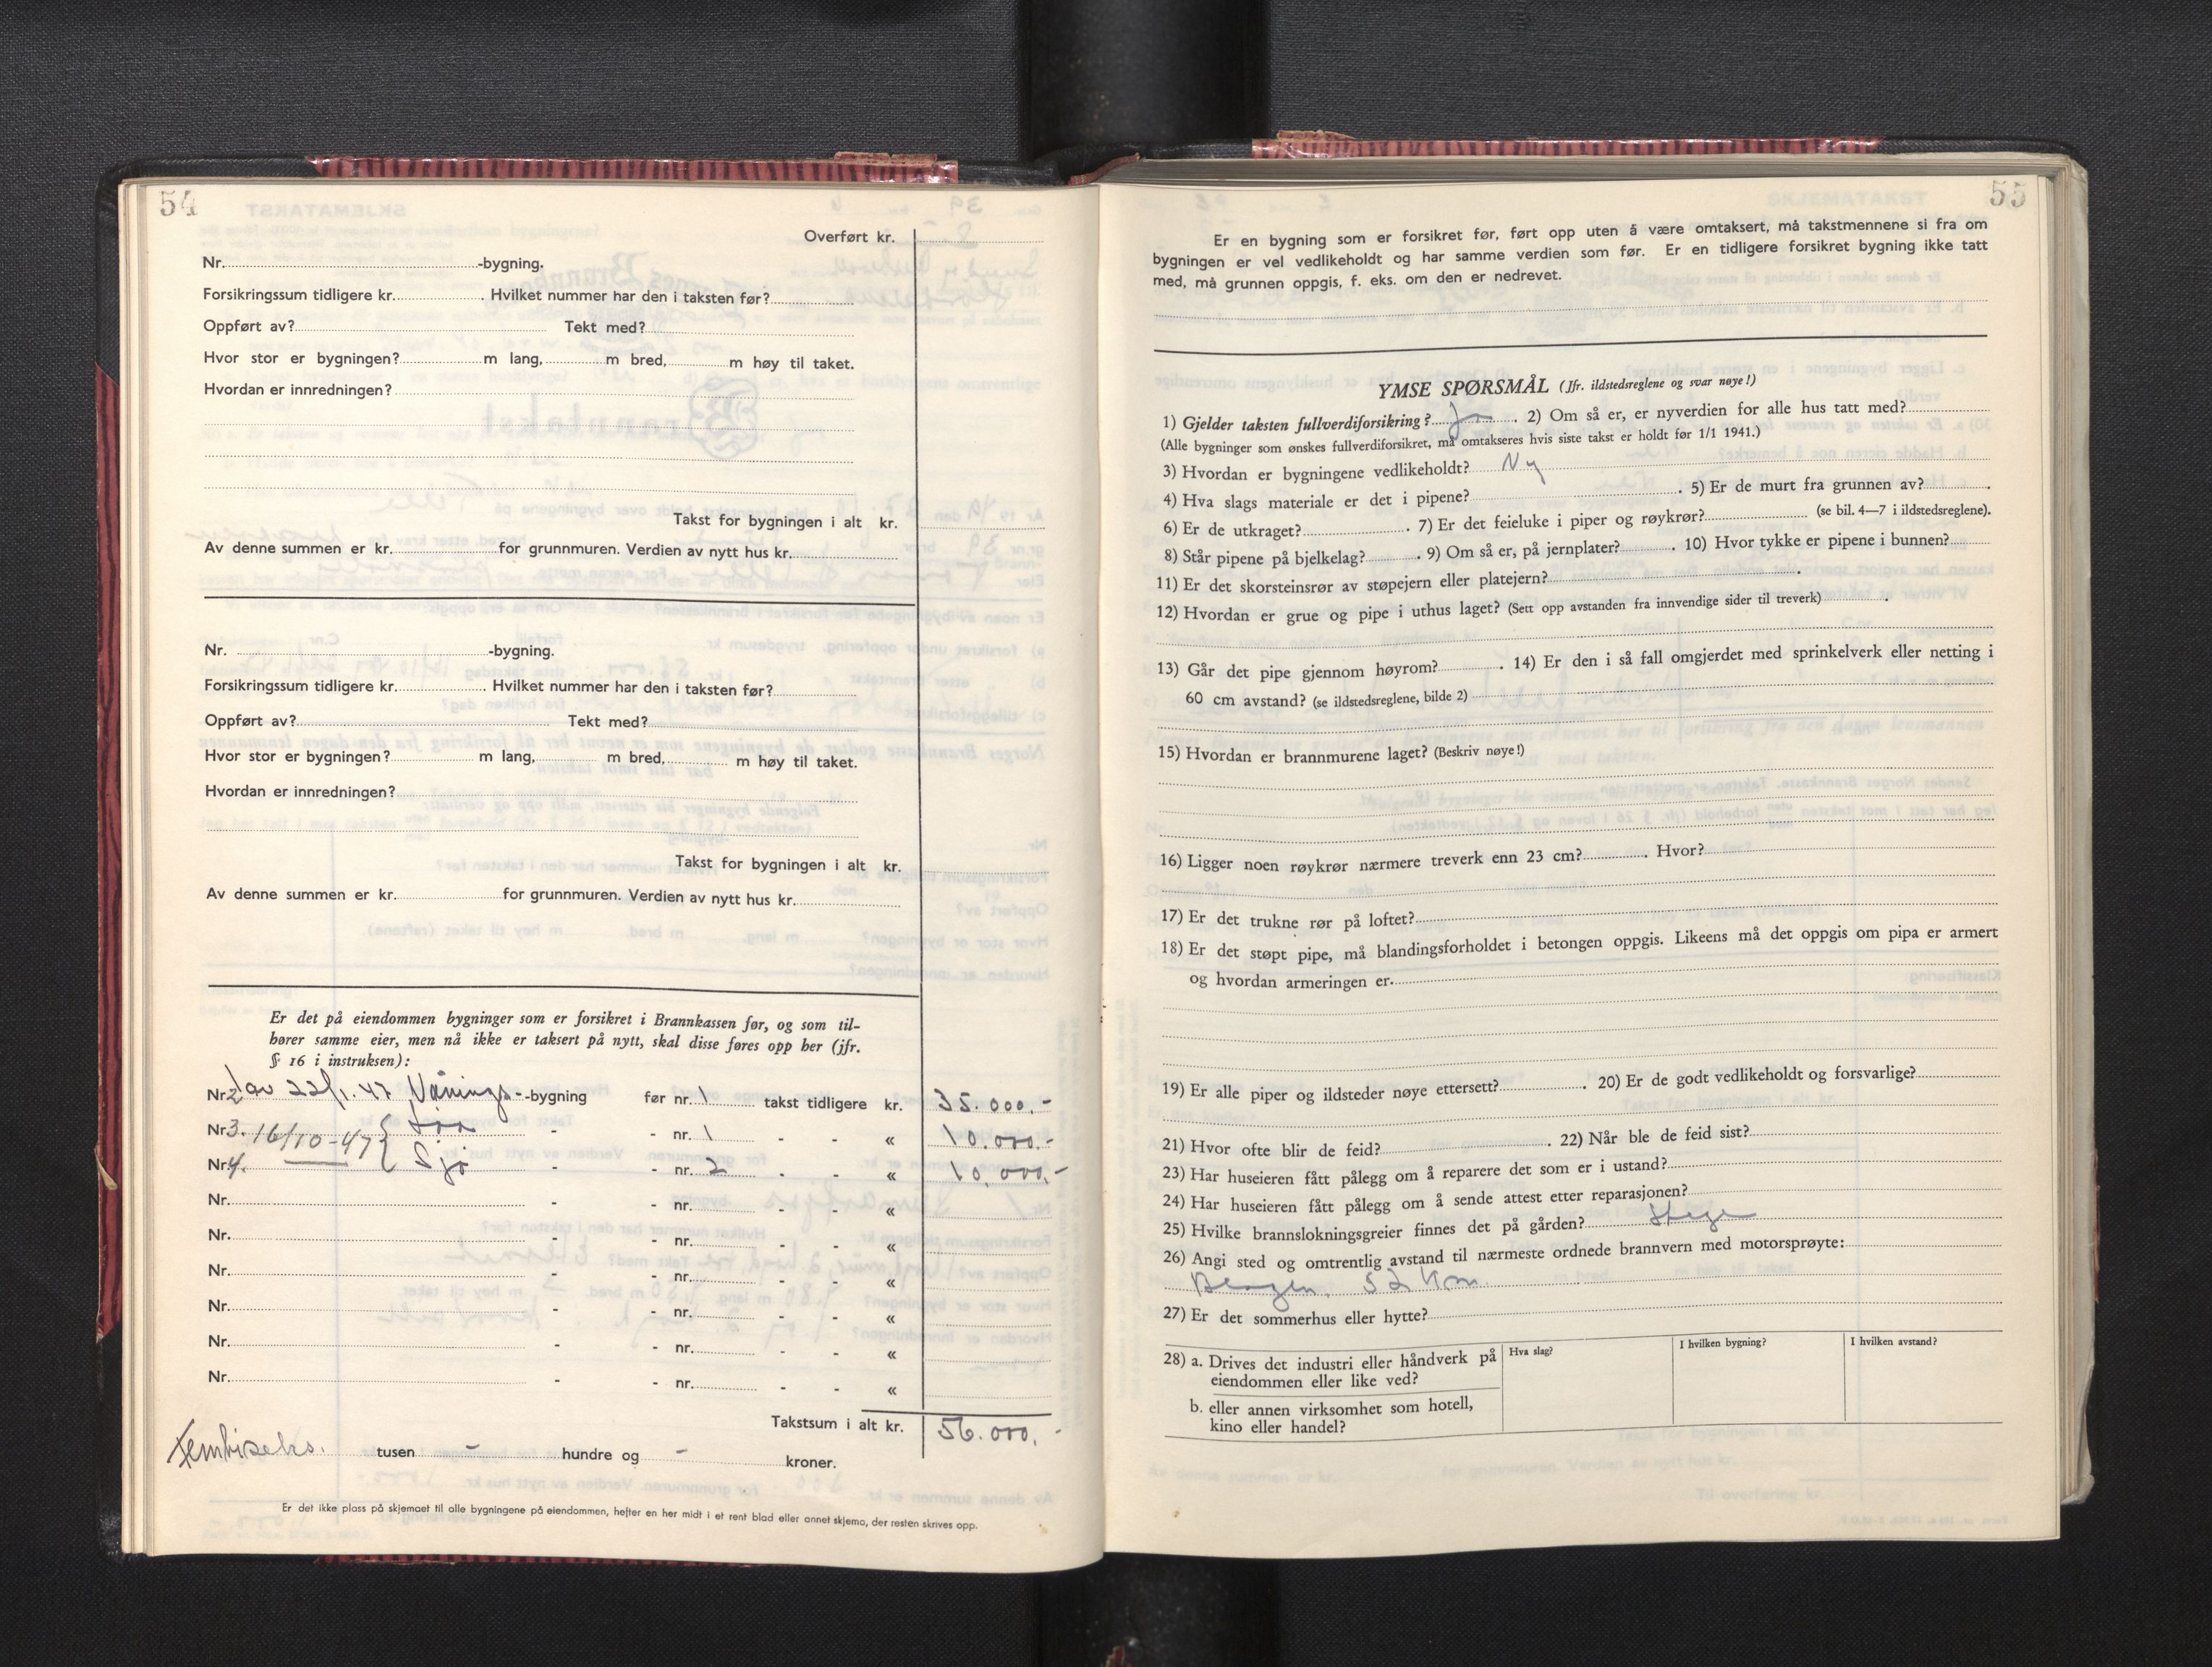 54
Overført kr.
Nr. -bygning.
Forsikringssum tidligere kr. . Hvilket nummer har den i taksten før?
Oppført av? Tekt med?
Hvor stor er bygningen? m lang, m bred, m høy til taket.
Hvordan er innredningen?
Takst for bygningen i alt kr.
Av denne summen er kr. for grunnmuren. Verdien av nytt hus kr.
Nr. -bygning.
Forsikringssum tidligere kr. . Hvilket nummer har den i taksten før?
Oppført av? Tekt med?
Hvor stor er bygningen? m lang, m bred, m høy til taket.
Hvordan er innredningen?
Takst for bygningen i alt kr.
Av denne summen er kr. for grunnmuren. Verdien av nytt hus kr.
Er det på eiendommen bygninger som er forsikret i Brannkassen før, og som til-
hører samme eier, men nå ikke er taksert på nytt, skal disse føres opp her (jfr.
§ 16 i instruksen):
Nr. 2 av 22/1.47 Vånings--bygning før nr. 1 takst tidligere kr. 35.000.-
Nr. 3. 16/10-47 { - - nr. 1 - - « 10.000.-
Nr. 4. Sjø - - nr. 2 - - « 10.000.-
Nr. - - nr. - - «
Nr. - - nr. - - «
Nr. - - nr. - - «
Nr. - - nr. - - «
Nr. - - nr. - - «
Nr. - - nr. - - «
Takstsum i alt kr. 56.000.-
Femtiseks. tusen - hundre og - kroner.
Er det ikke plass på skjemaet til alle bygningene på eiendommen, hefter en her midt i et rent blad eller annet skjema, der resten skrives opp.
55
Er en bygning som er forsikret før, ført opp uten å være omtaksert, må takstmennene si fra om
bygningen er vel vedlikeholdt og har samme verdien som før. Er en tidligere forsikret bygning ikke tatt
med, må grunnen oppgis, f. eks. om den er nedrevet.
YMSE SPØRSMÅL (Jfr. ildstedsreglene og svar nøye!)
1) Gjelder taksten fullverdiforsikring? Ja . 2) Om så er, er nyverdien for alle hus tatt med?
(Alle bygninger som ønskes fullverdiforsikret, må omtakseres hvis siste takst er holdt før 1/1 1941.)
3) Hvordan er bygningene vedlikeholdt? Ny
4) Hva slags materiale er det i pipene? . 5) Er de murt fra grunnen av? .
6) Er de utkraget? . 7) Er det feieluke i piper og røykrør? (se bil. 4—7 i ildstedsreglene).
8) Står pipene på bjelkelag? . 9) Om så er, på jernplater? . 10) Hvor tykke er pipene i bunnen?
11) Er det skorsteinsrør av støpejern eller platejern? .
12) Hvordan er grue og pipe i uthus laget? (Sett opp avstanden fra innvendige sider til treverk) .
13) Går det pipe gjennom høyrom? . 14) Er den i så fall omgjerdet med sprinkelverk eller netting i
60 cm avstand? (se ildstedsreglene, bilde 2)
15) Hvordan er brannmurene laget? (Beskriv nøye!)
16) Ligger noen røykrør nærmere treverk enn 23 cm? . Hvor?
17) Er det trukne rør på loftet?
18) Er det støpt pipe, må blandingsforholdet i betongen oppgis. Likeens må det oppgis om pipa er armert
og hvordan armeringen er.
19) Er alle piper og ildsteder nøye ettersett? . 20) Er de godt vedlikeholdt og forsvarlige?
21) Hvor ofte blir de feid? . 22) Når ble de feid sist?
23) Har huseieren fått pålegg om å reparere det som er i ustand?
24) Har huseieren fått pålegg om å sende attest etter reparasjonen?
25) Hvilke brannslokningsgreier finnes det på gården? Stige
26) Angi sted og omtrentlig avstand til nærmeste ordnede brannvern med motorsprøyte:
Bergen. 52 km.
27) Er det sommerhus eller hytte?
28) a. Drives det industri eller håndverk på Hva slag? I hvilken bygning? I hvilken avstand?
eiendommen eller like ved?
b. eller annen virksomhet som hotell,
kino eller handel?